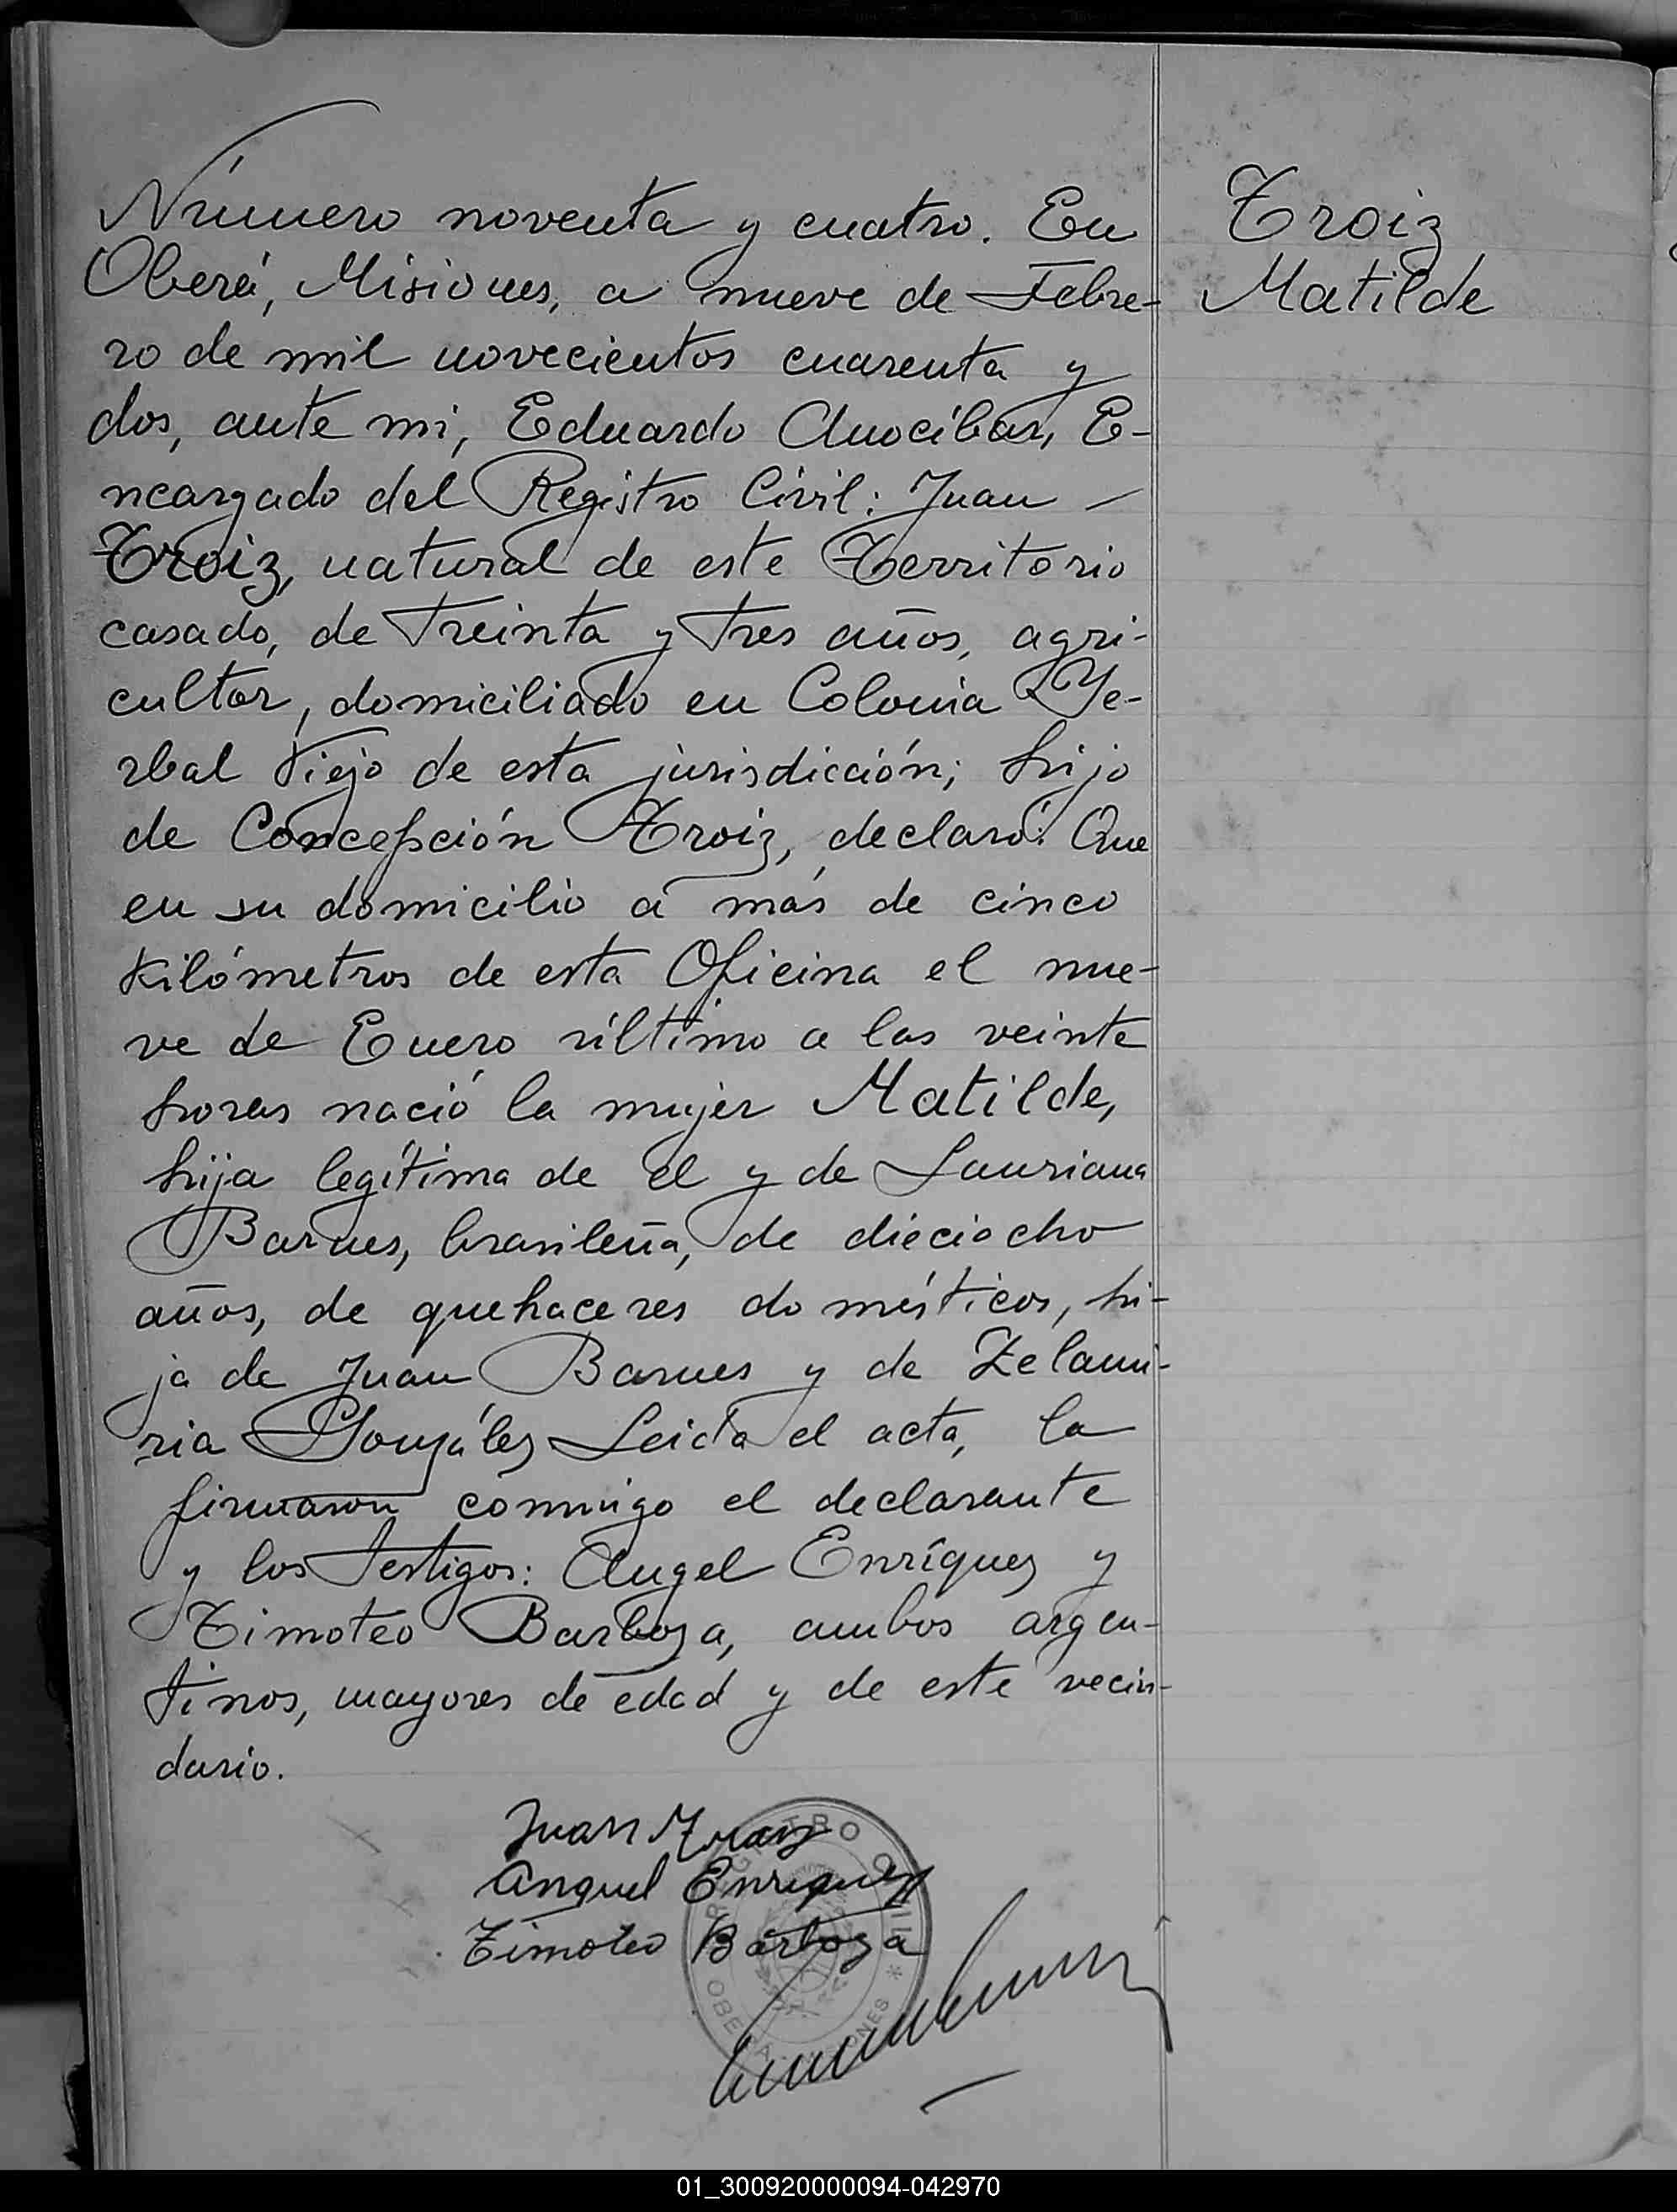 Número noventa y cuatro. En
Oberá, Misiones, a nueve de Febre-
ro de mil novecientos cuarenta y
dos, ante mi, Eduardo Anocíbar, E-
ncargado del Registro Civil: Juan
Troiz, natural de este Territorio
casado, de treinta y tres años, agri-
cultor, domiciliado en Colonia Ye-
rbal Viejo de esta jurisdicción; hijo
de Concepción Troiz, declaró: Que
en su domicilio á más de cinco
kilómetros de esta Oficina el nue-
ve de Enero último a las veinte
horas nació la mujer Matilde,
hija legítima de el y de Lauriana
Barnes, brasileña, de dieciocho
años, de quehaceres domésticos, hi-
ja de Juan Barnes y de Zelami-
ria Gonzáles Leida el acta, la
firmaron conmigo el declarante
y los testigos: Angel Enríquez y
Timoteo Barboza, ambos argen-
tinos, mayores de edad y de este vecin-
dario.
Troiz
Matilde
Juan
Anguel Enriquez
Timoteo Barboza
REGISTRO CIVIL
OBERA MISIONES
01_300920000094-042970